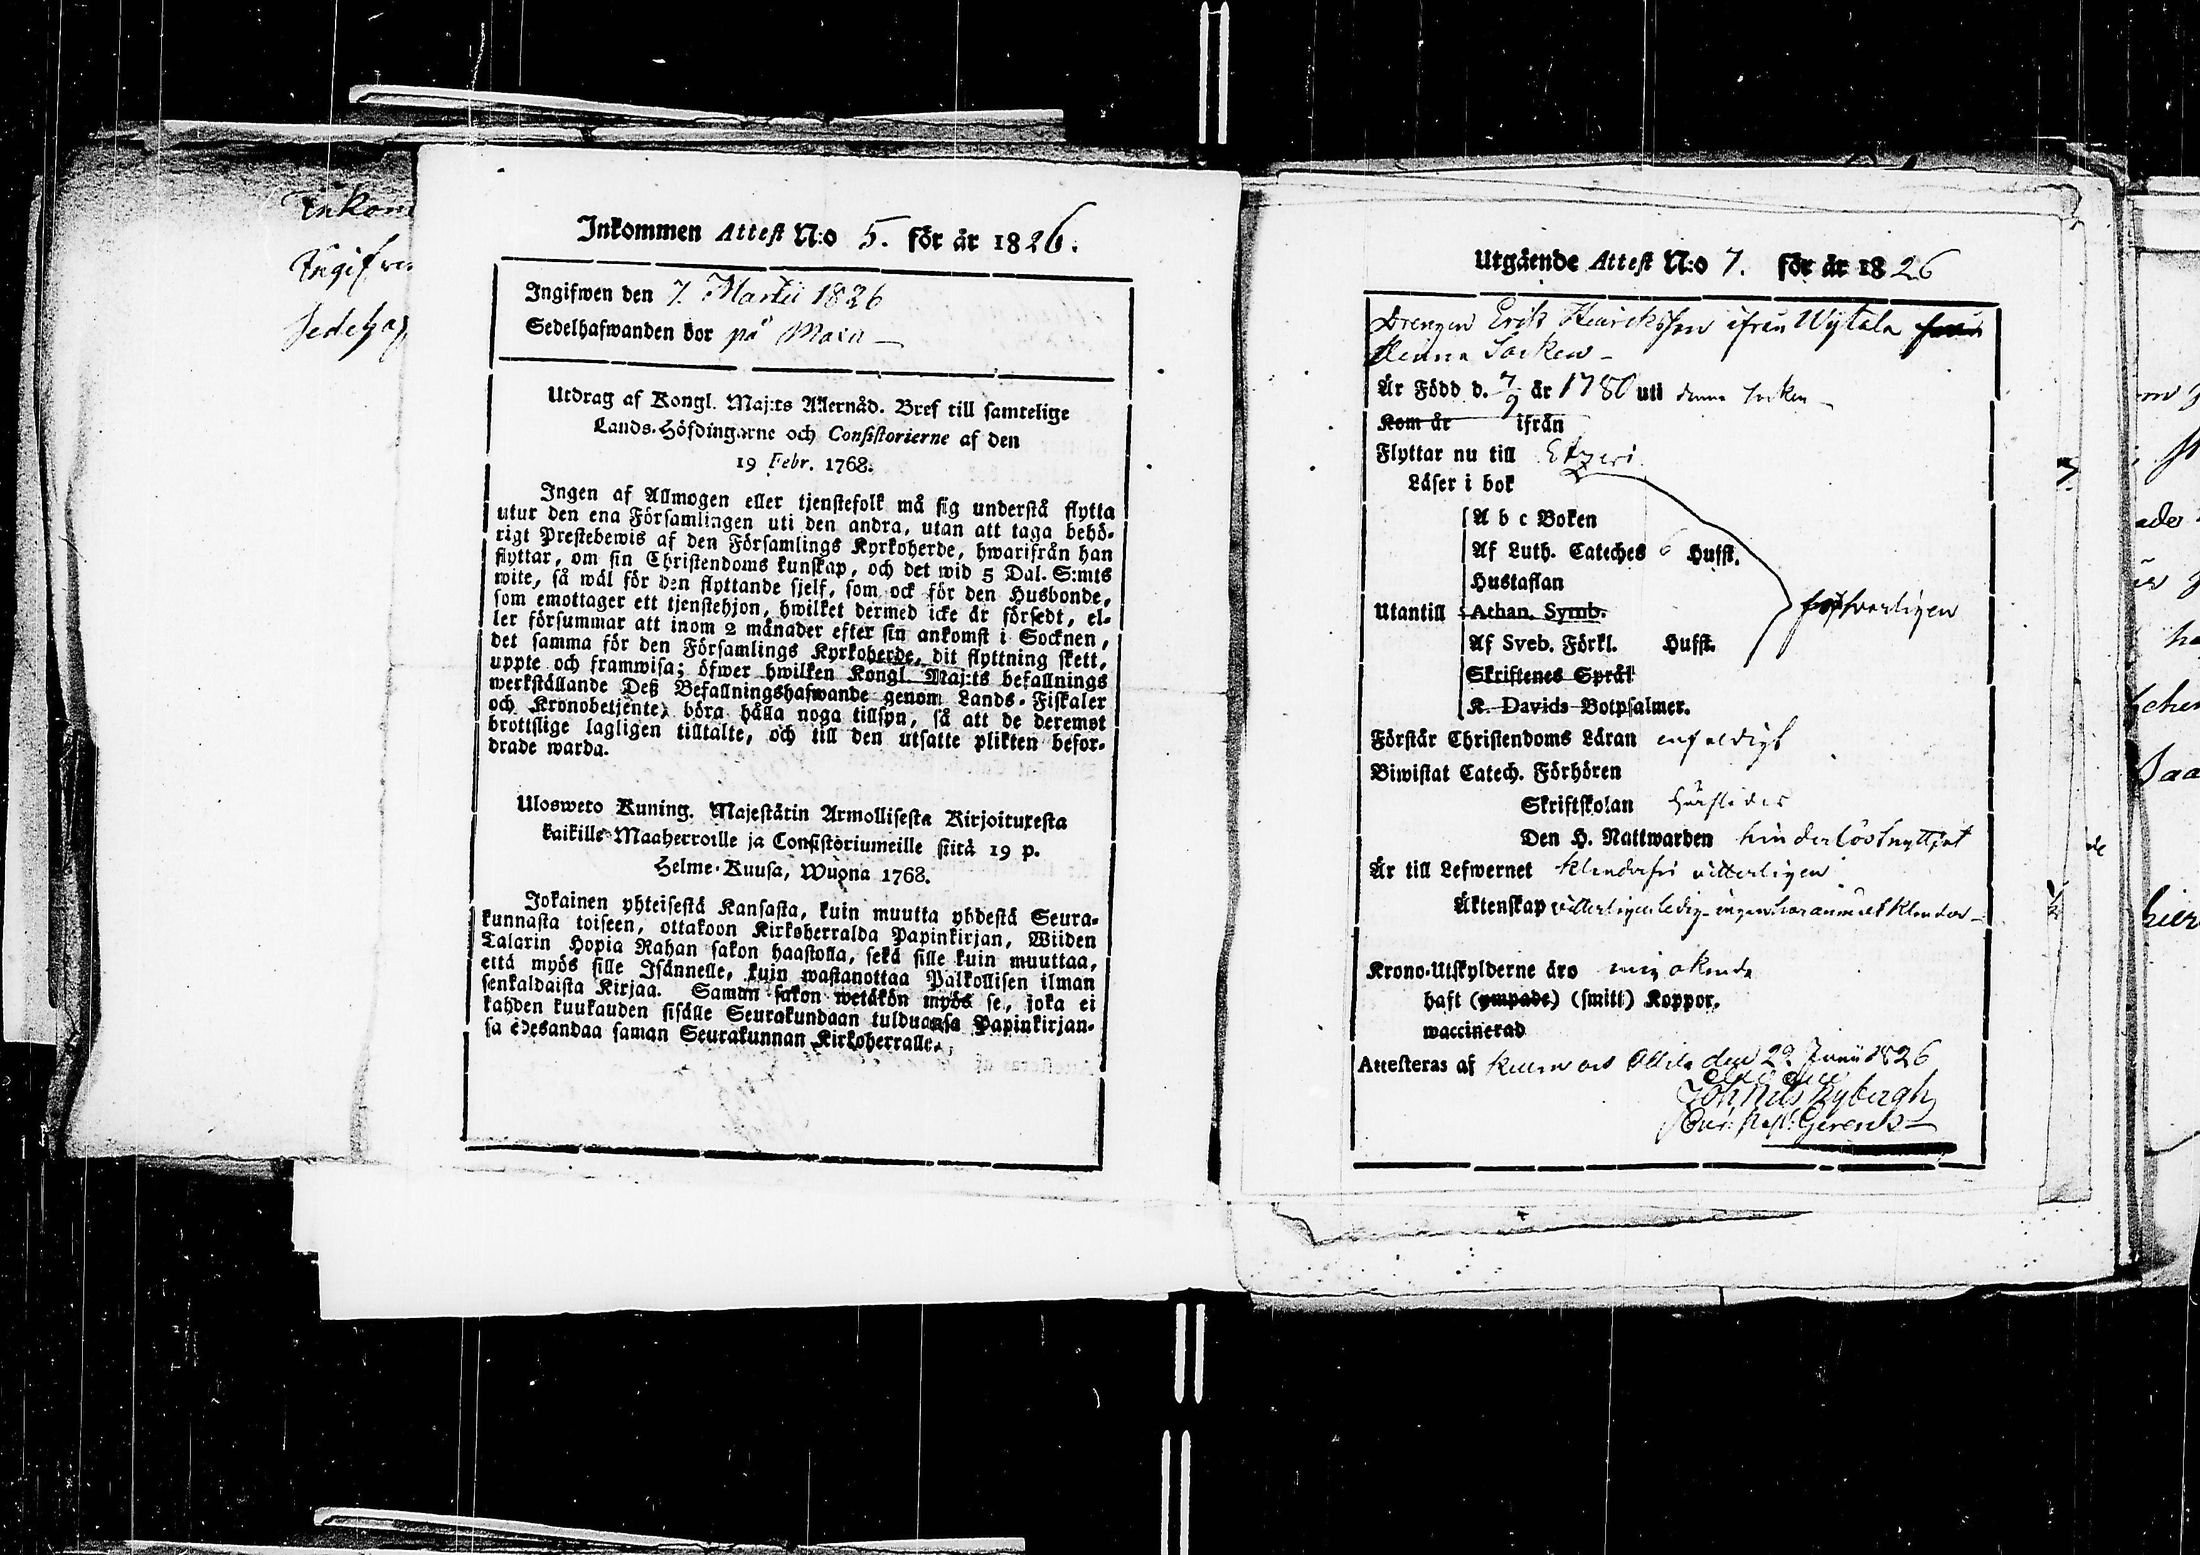 Inkom
Ingifwe
Sedelha
Inkommen Attest N:o 5. för år 1826.
Ingifwen den 7. Martii 1826
Sedelhafwanden bor på
Utdrag af Kongl. Maj:ts Allernåd. Bref till samtelige
Lands-Höfdingarne och Consistorierne af den
19 Febr. 1768.
Ingen af Allmogen eller tjenstefolk må sig understå flytta
utur den ena Församlingen uti den andra, utan att taga behö-
rigt Prestebewis af den Församlings Kyrkoherde, hwarifrån han
flyttar, om sin Christendoms kunskap, och det wid 5 Dal. S:mts
wite, så wäl för den flyttande sjelf, som ock för den Husbonde,
som emottager ett tjenstehjon, hwilket dermed icke är försedt, el-
ler försummar att inom 2 månader efter sin ankomst i Socknen,
det samma för den Församlings Kyrkoherde, dit flyttning skett,
uppte och framwisa; öfwer hwilken Kongl. Maj:ts befallnings
werkställande Deß Befallningshafwande genom Lands-Fiskaler
och Kronobetjente, böra hålla noga tillsyn, så att de deremot
brottslige lagligen tilltalte, och till den utsatte plikten befor-
drade warda.
Ulosweto Kuning. Majestätin Armollisesta Kirjoituxesta
kaikille Maaherroille ja Consistoriumeille siitä 19 p.
Helme-Kuusa, Wuonna 1768.
Jokainen yhteisestä Kansasta, kuin muutta yhdestä Seura-
kunnasta toiseen, ottakoon Kirkoherralda Papinkirjan, Wiiden
Talarin Hopia Rahan sakon haastolla, sekä sille kuin muuttaa,
että myös sille Isännelle, kuin wastanottaa Palkollisen ilman
senkaldaista Kirjaa. Saman sakon wetäkön myös se, joka ei
kahden kuukauden sisälle Seurakundaan tulduansa Papinkirjan-
sa edesandaa saman Seurakunnan Kirkoherralle.
Utgående Attest N:o 7. för år 1826
Drengen Erik Henricksson ifrån Wytala
denna Socken
Är Född d. 7/9 år 1780 uti denna Socken
Kom år ifrån
Flyttar nu till Etzeri
Läser i bok
A b c Boken
Af Luth. Cateches 6 Hufst.
Hustaflan
Utantill Athan. Symb. försvarligen
Af Sveb. Förkl. Hufst.
Skriftenes Språk
K. Davids Botpsalmer.
Förstår Christendoms Läran enfaldigt
Biwistat Catech. Förhören
Skriftskolan
Den H. Nattwarden hinderlöst nyttjat
Är till Lefwernet klanderfri vitterligen
Äktenskap vitterligen ledig
Krono-Utskylderne äro mig okända
haft (ympade) (smitt) Koppor.
waccinerad
Attesteras af den 29 Junii 1826
Joh Nils Rybergh